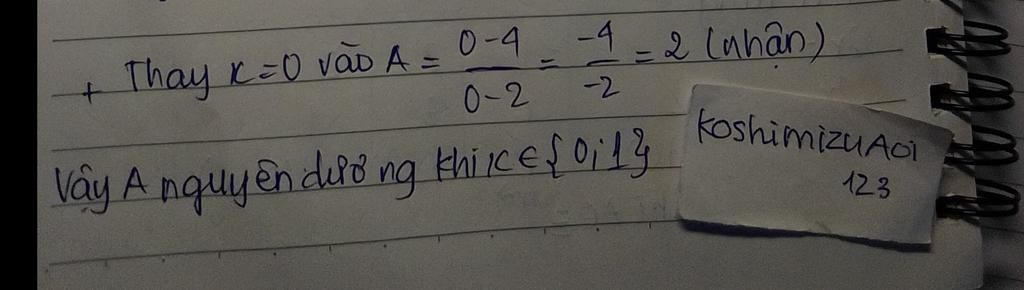 + Thay x=0 vào A = \frac{0-4}{0-2} = \frac{-4}{-2} = 2 (nhận)
Vậy A nguyên dương khi x ∈ {0;1}
KoshimizuAoi
123